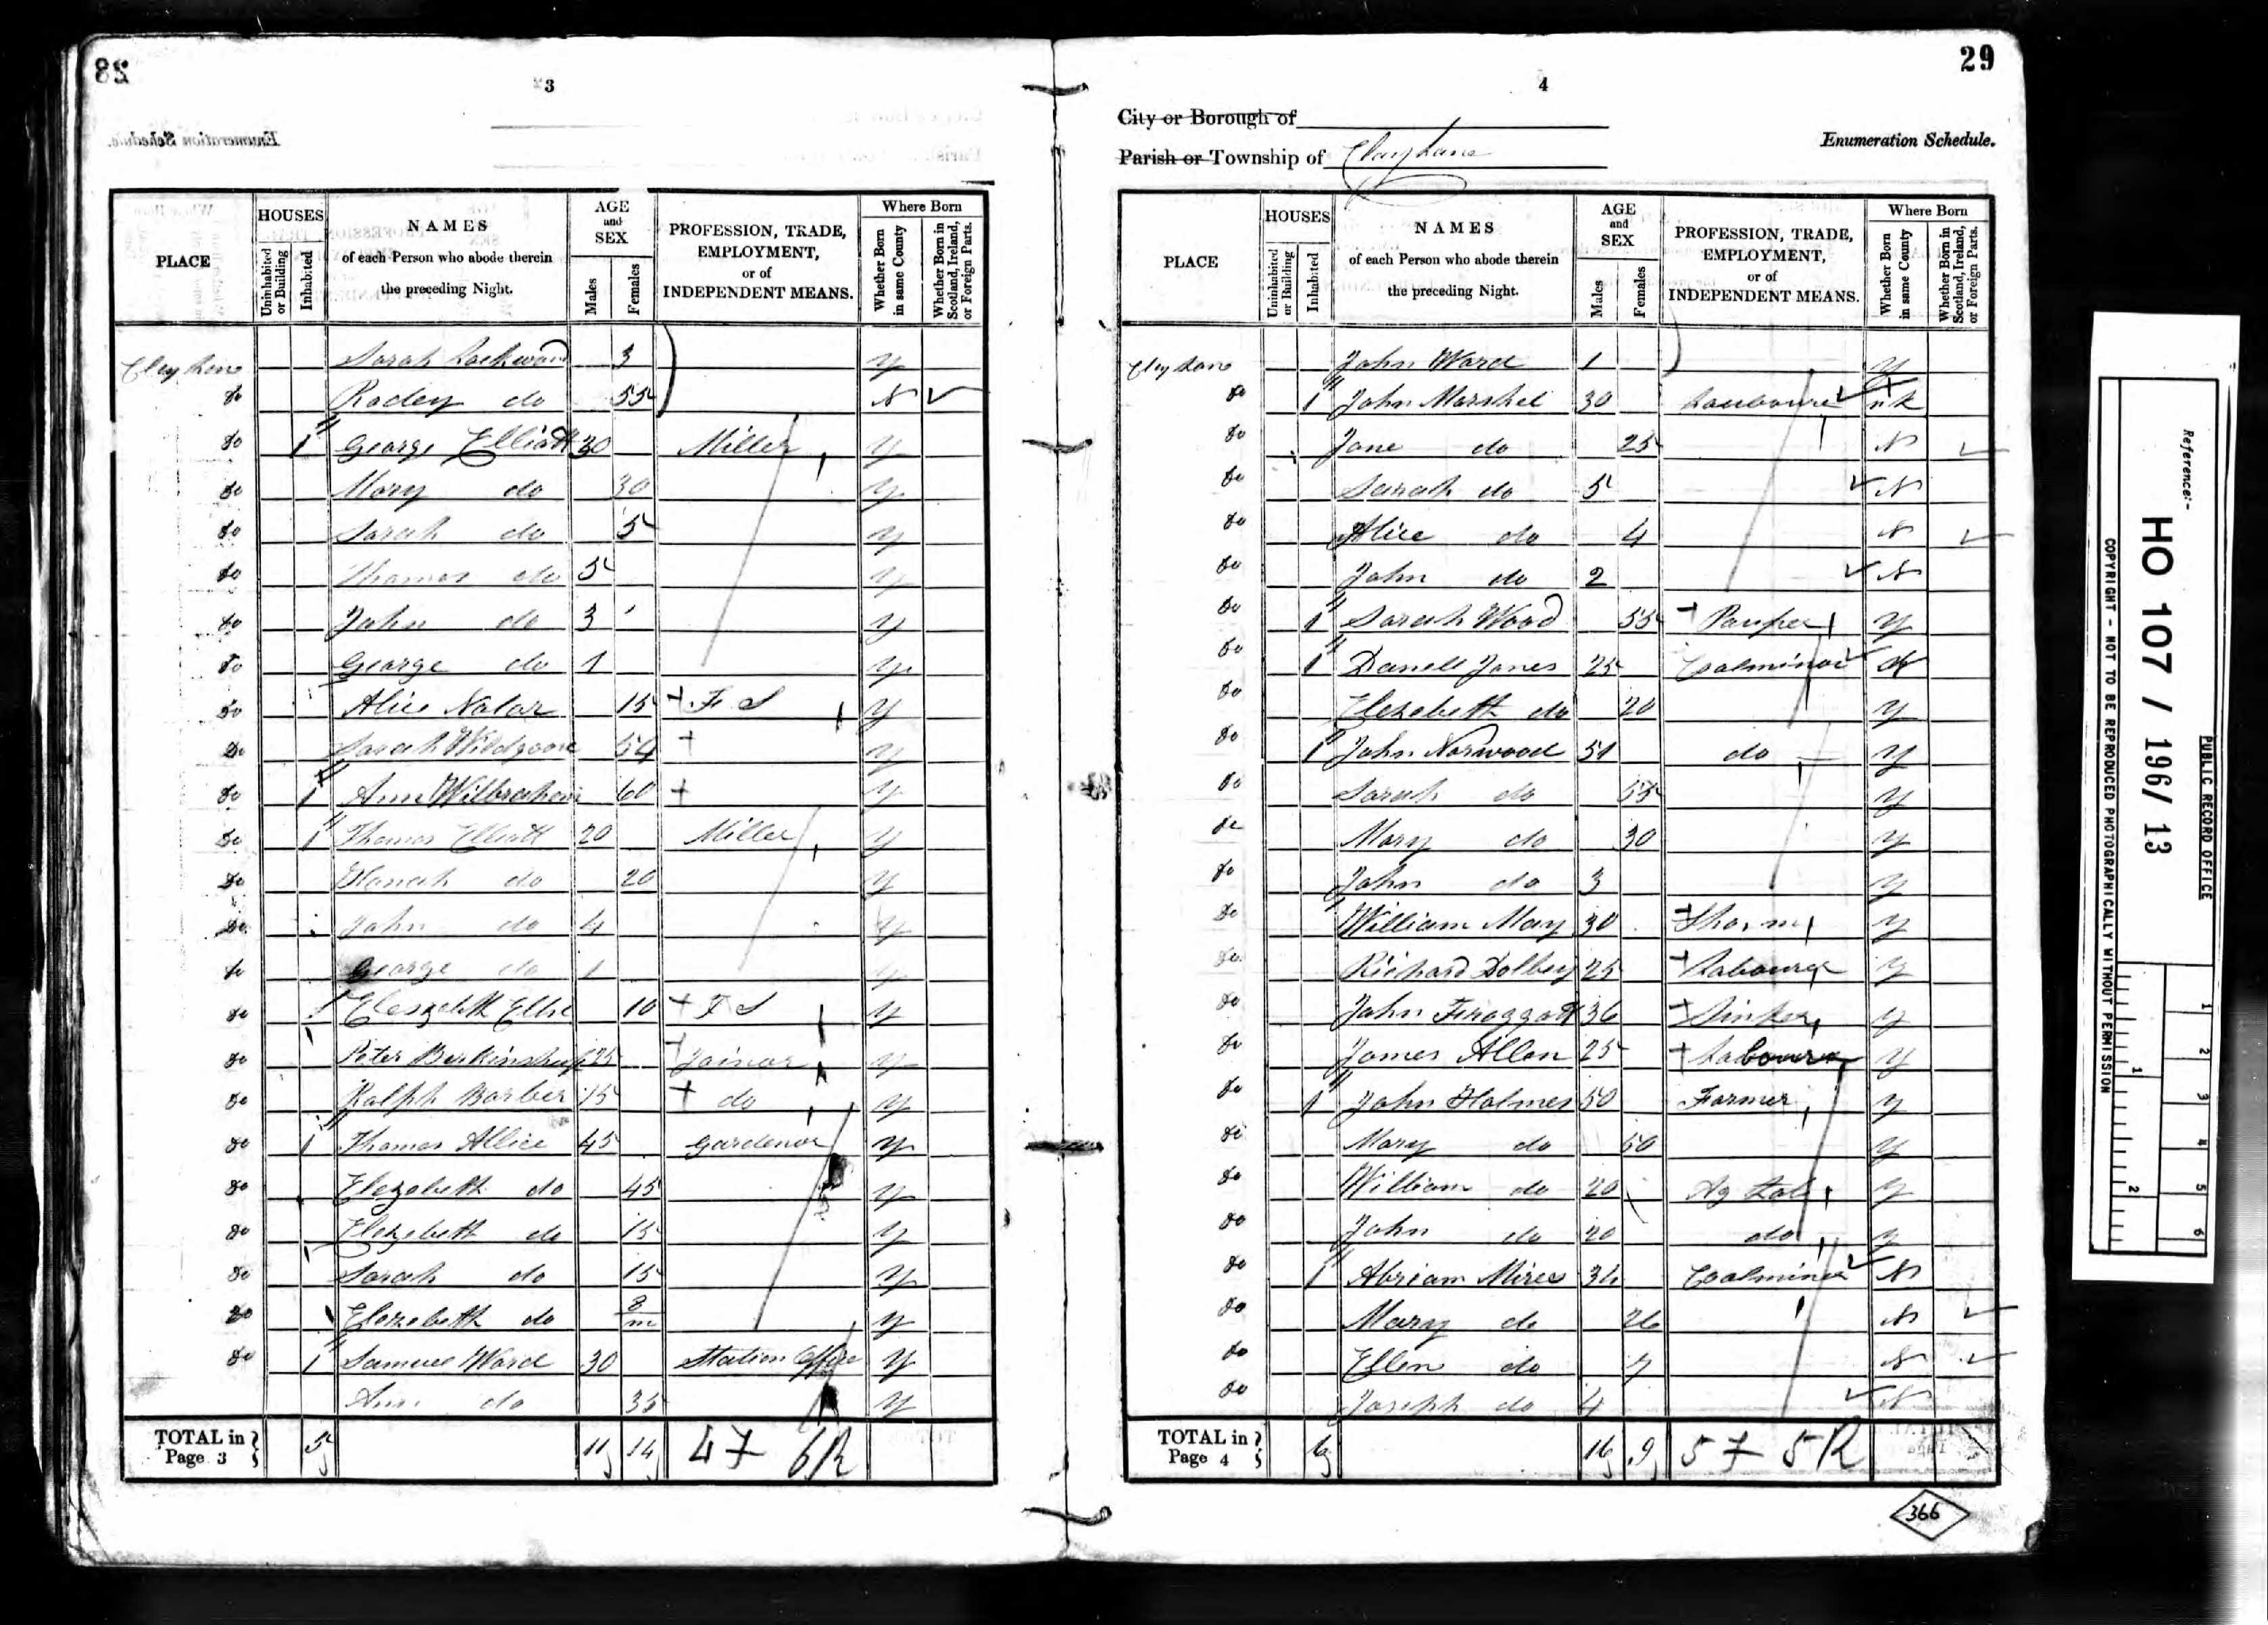 28
3
Enumeration Schedule.
PLACE
HOUSES
Uninhabited or Building
Inhabited
NAMES
of each Person who abode therein
the preceding Night.
AGE
and
SEX
Males
Females
PROFESSION, TRADE,
EMPLOYMENT,
or of
INDEPENDENT MEANS.
Where Born
Whether Born in same County
Whether Born in Scotland, Ireland, or Foreign Parts.
Clay Lane Sarah Lockwood 3 y
do do 55 N
do 1 George Elliott 30 Miller y
do Mary do 30 y
do Sarah do 5 y
do Thomas do 5 y
do John do 3 y
do George do 1 y
do Alice 15 F S y
do Sarah Wildgoose 54 y
do 1 Ann Wilbraham 60 y
do 1 Thomas Elliott 20 Miller y
do Hanah do 20 y
do John do 4 y
do George do 1 y
do 10 F S y
do Peter 25 Joinar y
do Ralph Barber 15 do y
do 1 Thomas Allice 45 Gardenor y
do Elezebeth do 45 y
do Elezebeth do 15 y
do Sarah do 15 y
do Elezebeth do 8 m y
do 1 Samuel Ward 30 Station y
Ann do 35 y
TOTAL in Page 3 5 11 14 47 6R
29
4
City or Borough of
Parish or Township of Clay Lane
Enumeration Schedule.
PLACE
HOUSES
Uninhabited or Building
Inhabited
NAMES
of each Person who abode therein
the preceding Night.
AGE
and
SEX
Males
Females
PROFESSION, TRADE,
EMPLOYMENT,
or of
INDEPENDENT MEANS.
Where Born
Whether Born in same County
Whether Born in Scotland, Ireland, or Foreign Parts.
Clay Lane John Ward 1 y
do 1 John Marshel 30 nk
do Jane do 25 N
do Sarah do 5 N
do Alice do 4 N
do John do 2 N
do 1 Sarah Wood 55 Pauper y
do 1 Jones 25 N
do Elezebeth do 20 y
do 1 John Norwood 51 do y
do Sarah do 55 y
do Mary do 30 y
do John do 3 y
do William May 30 y
do Richard Dolbey 25 y
do John Froggatt 36 Sinker y
do James Allen 25 y
do 1 John Holmes 50 Farmer y
do Mary do 50 y
do William do 20 Ag Lab y
do John do 20 do y
do 1 Abriam Mires N
do Mary do 26 N
do Ellen do 7 N
do Joseph do 4 N
TOTAL in Page 4 6 16 9 57 5R
366
Reference:-
HO 107 / 196/ 13
PUBLIC RECORD OFFICE
COPYRIGHT - NOT TO BE REPRODUCED PHOTOGRAPHICALLY WITHOUT PERMISSION
1
2
3
4
5
6
1
2